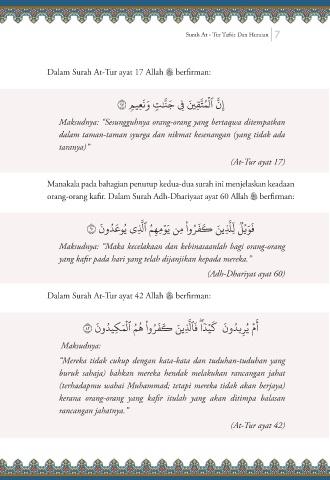 Surah At - Tur Tafsir Dan Huraian 7
Dalam Surah At-Tur ayat 17 Allah ﷻ berfirman:
إِنَّ ٱلْمُتَّقِينَ فِى جَنَّـٰتٍ وَنَعِيمٍ ۝١٧
Maksudnya: “Sesungguhnya orang-orang yang bertaqwa ditempatkan
dalam taman-taman syurga dan nikmat kesenangan (yang tidak ada
taranya)”
(At-Tur ayat 17)
Manakala pada bahagian penutup kedua-dua surah ini menjelaskan keadaan
orang-orang kafir. Dalam Surah Adh-Dhariyaat ayat 60 Allah ﷻ berfirman:
فَوَيْلٌ لِّلَّذِينَ كَفَرُوا۟ مِن يَوْمِهِمُ ٱلَّذِى يُوعَدُونَ ۝٦٠
Maksudnya: “Maka kecelakaan dan kebinasaanlah bagi orang-orang
yang kafir pada hari yang telah dijanjikan kepada mereka.”
(Adh-Dhariyat ayat 60)
Dalam Surah At-Tur ayat 42 Allah ﷻ berfirman:
أَمْ يُرِيدُونَ كَيْدًا ۖ فَٱلَّذِينَ كَفَرُوا۟ هُمُ ٱلْمَكِيدُونَ ۝٤٢
Maksudnya:
“Mereka tidak cukup dengan kata-kata dan tuduhan-tuduhan yang
buruk sahaja) bahkan mereka hendak melakukan rancangan jahat
(terhadapmu wahai Muhammad; tetapi mereka tidak akan berjaya)
kerana orang-orang yang kafir itulah yang akan ditimpa balasan
rancangan jahatnya.”
(At-Tur ayat 42)